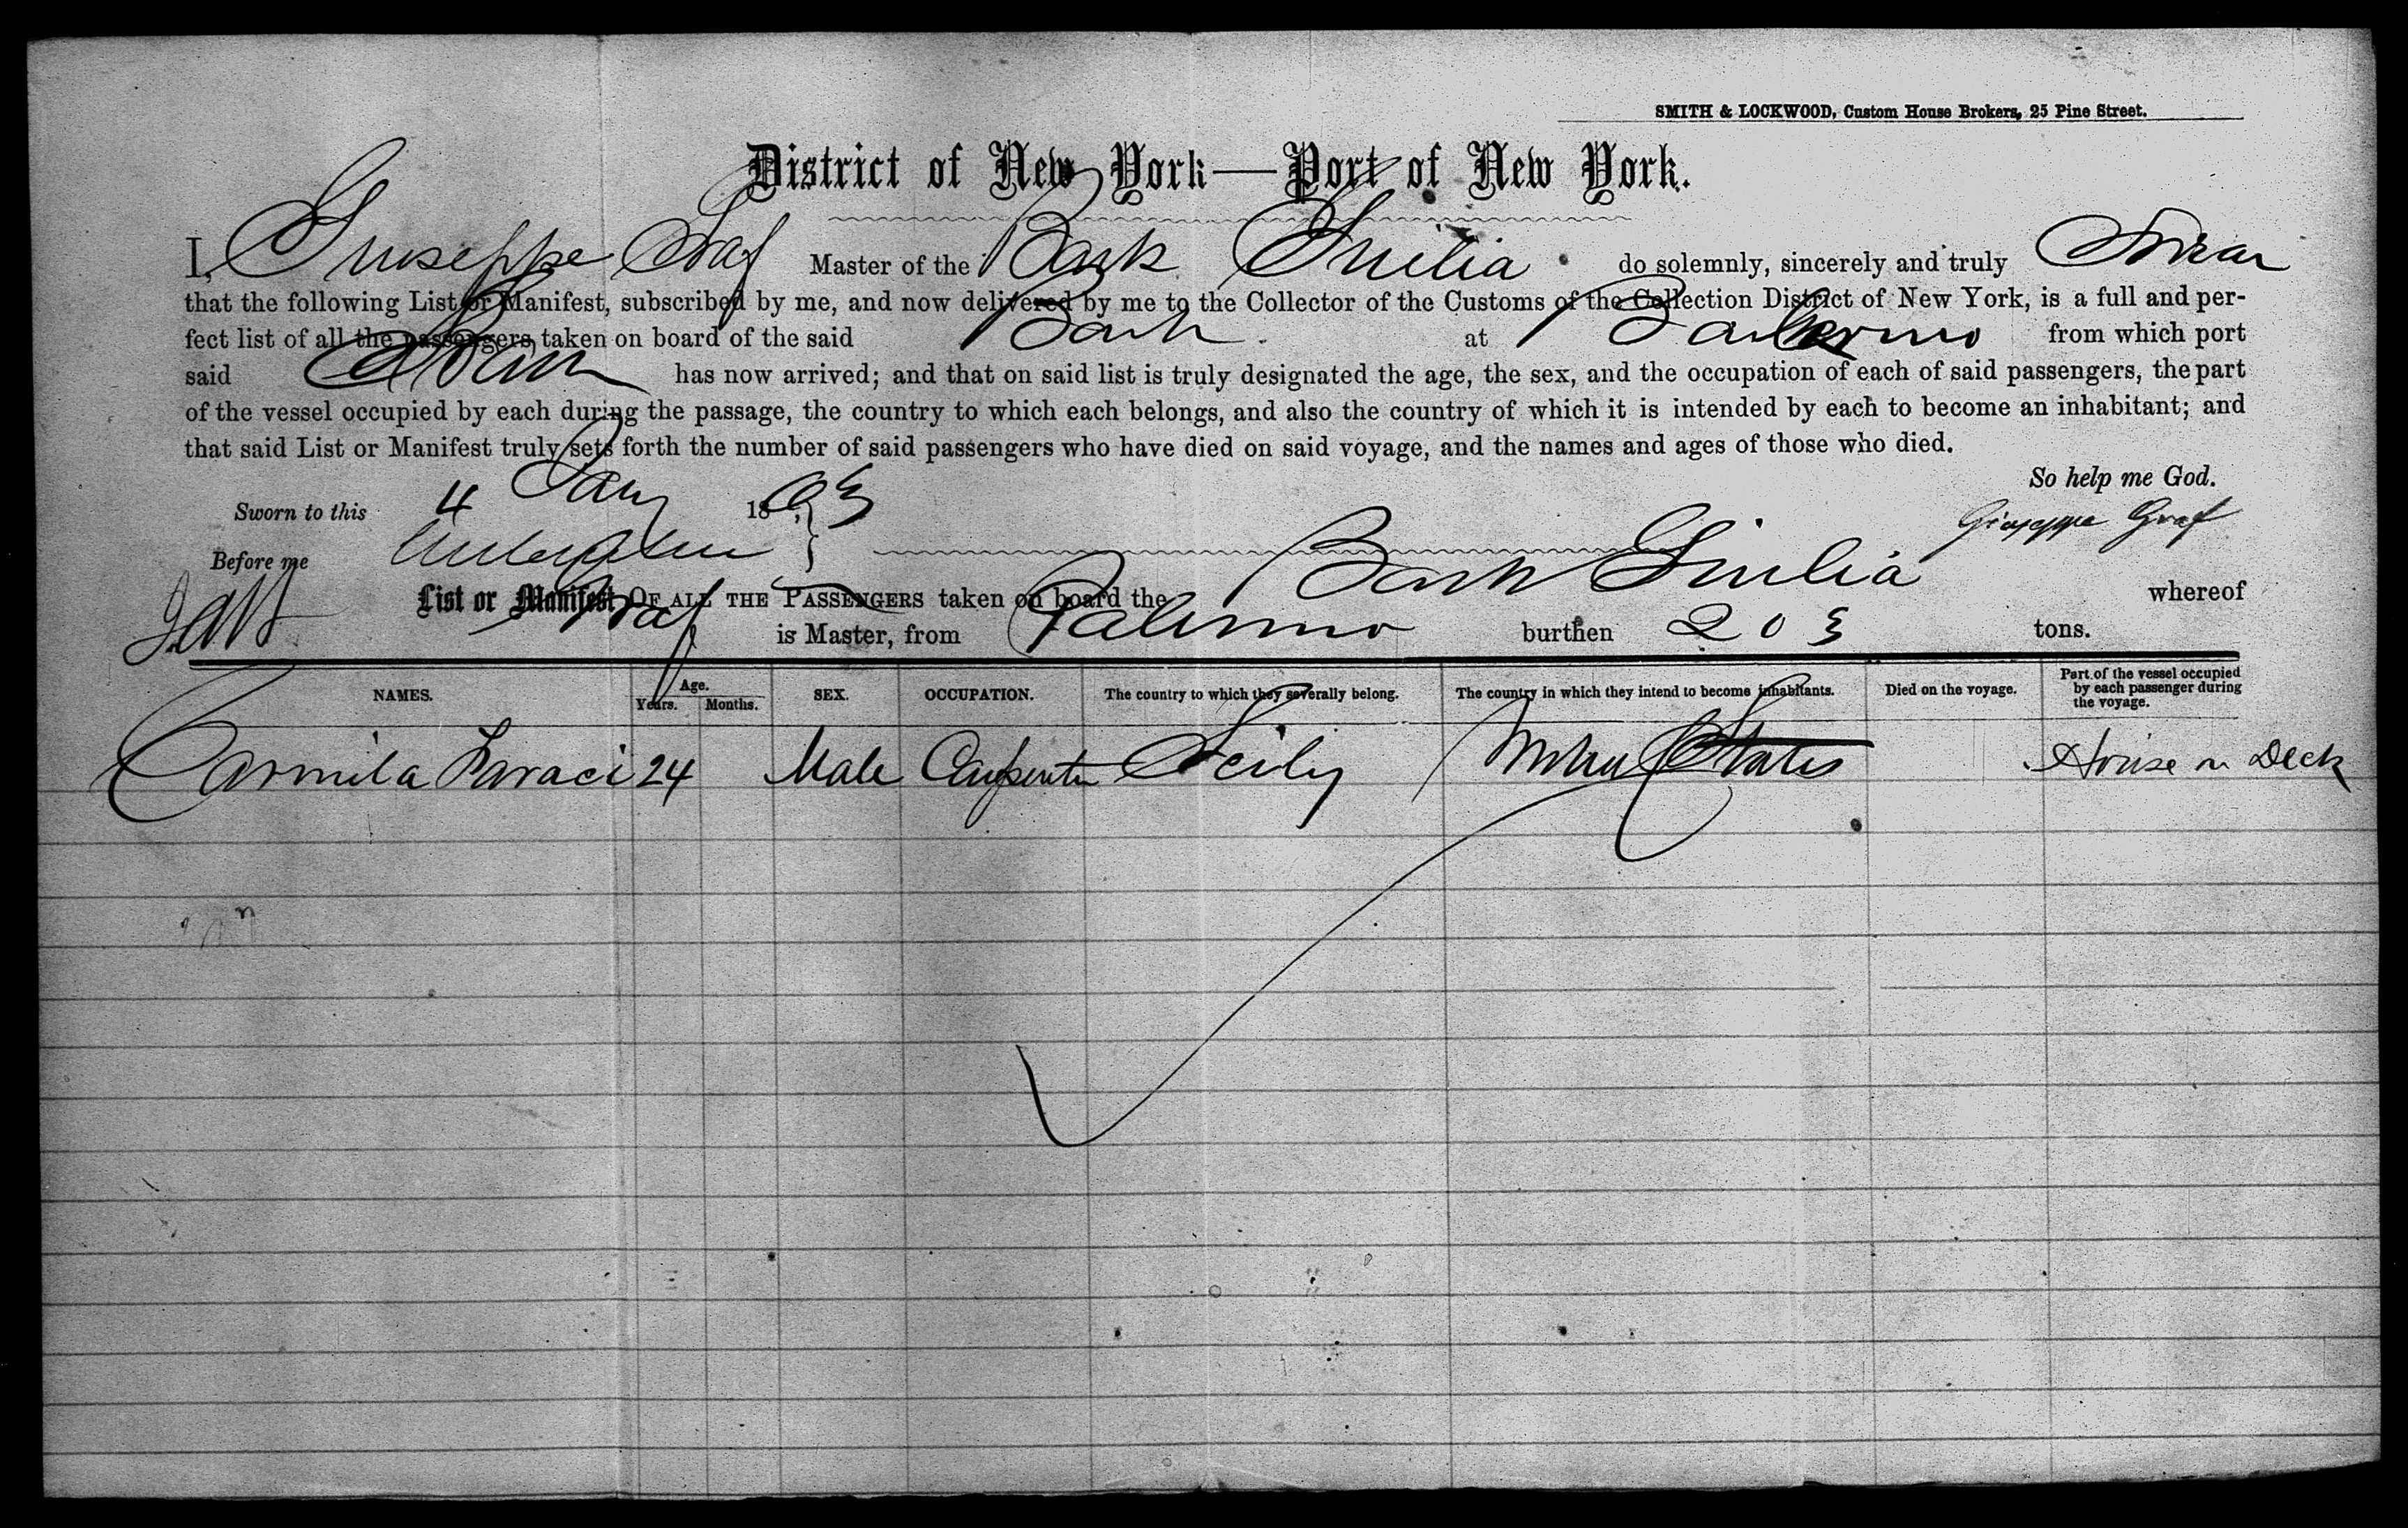 SMITH & LOCKWOOD, Custom House Brokers, 25 Pine Street.
District of New York—Port of New York.
I, Giuseppe Graf Master of the Bark Giulia do solemnly, sincerely and truly Swear
that the following List or Manifest, subscribed by me, and now delivered by me to the Collector of the Customs of the Collection District of New York, is a full and per-
fect list of all the passengers taken on board of the said Bark at Palermo from which port
said Bark has now arrived; and that on said list is truly designated the age, the sex, and the occupation of each of said passengers, the part
of the vessel occupied by each during the passage, the country to which each belongs, and also the country of which it is intended by each to become an inhabitant; and
that said List or Manifest truly sets forth the number of said passengers who have died on said voyage, and the names and ages of those who died.
So help me God.
Sworn to this 4 Jany 1863
Giuseppe Graf
Before me
List or Manifest OF ALL THE PASSENGERS taken on board the Bark Giulia whereof
Graf is Master, from Palermo burthen 203 tons.
NAMES. Age. Years. Months. SEX. OCCUPATION. The country to which they severally belong. The country in which they intend to become inhabitants. Died on the voyage. Part of the vessel occupied by each passenger during the voyage.
Carmila Faraci 24 Male Carpenter Sicily United States House on Deck